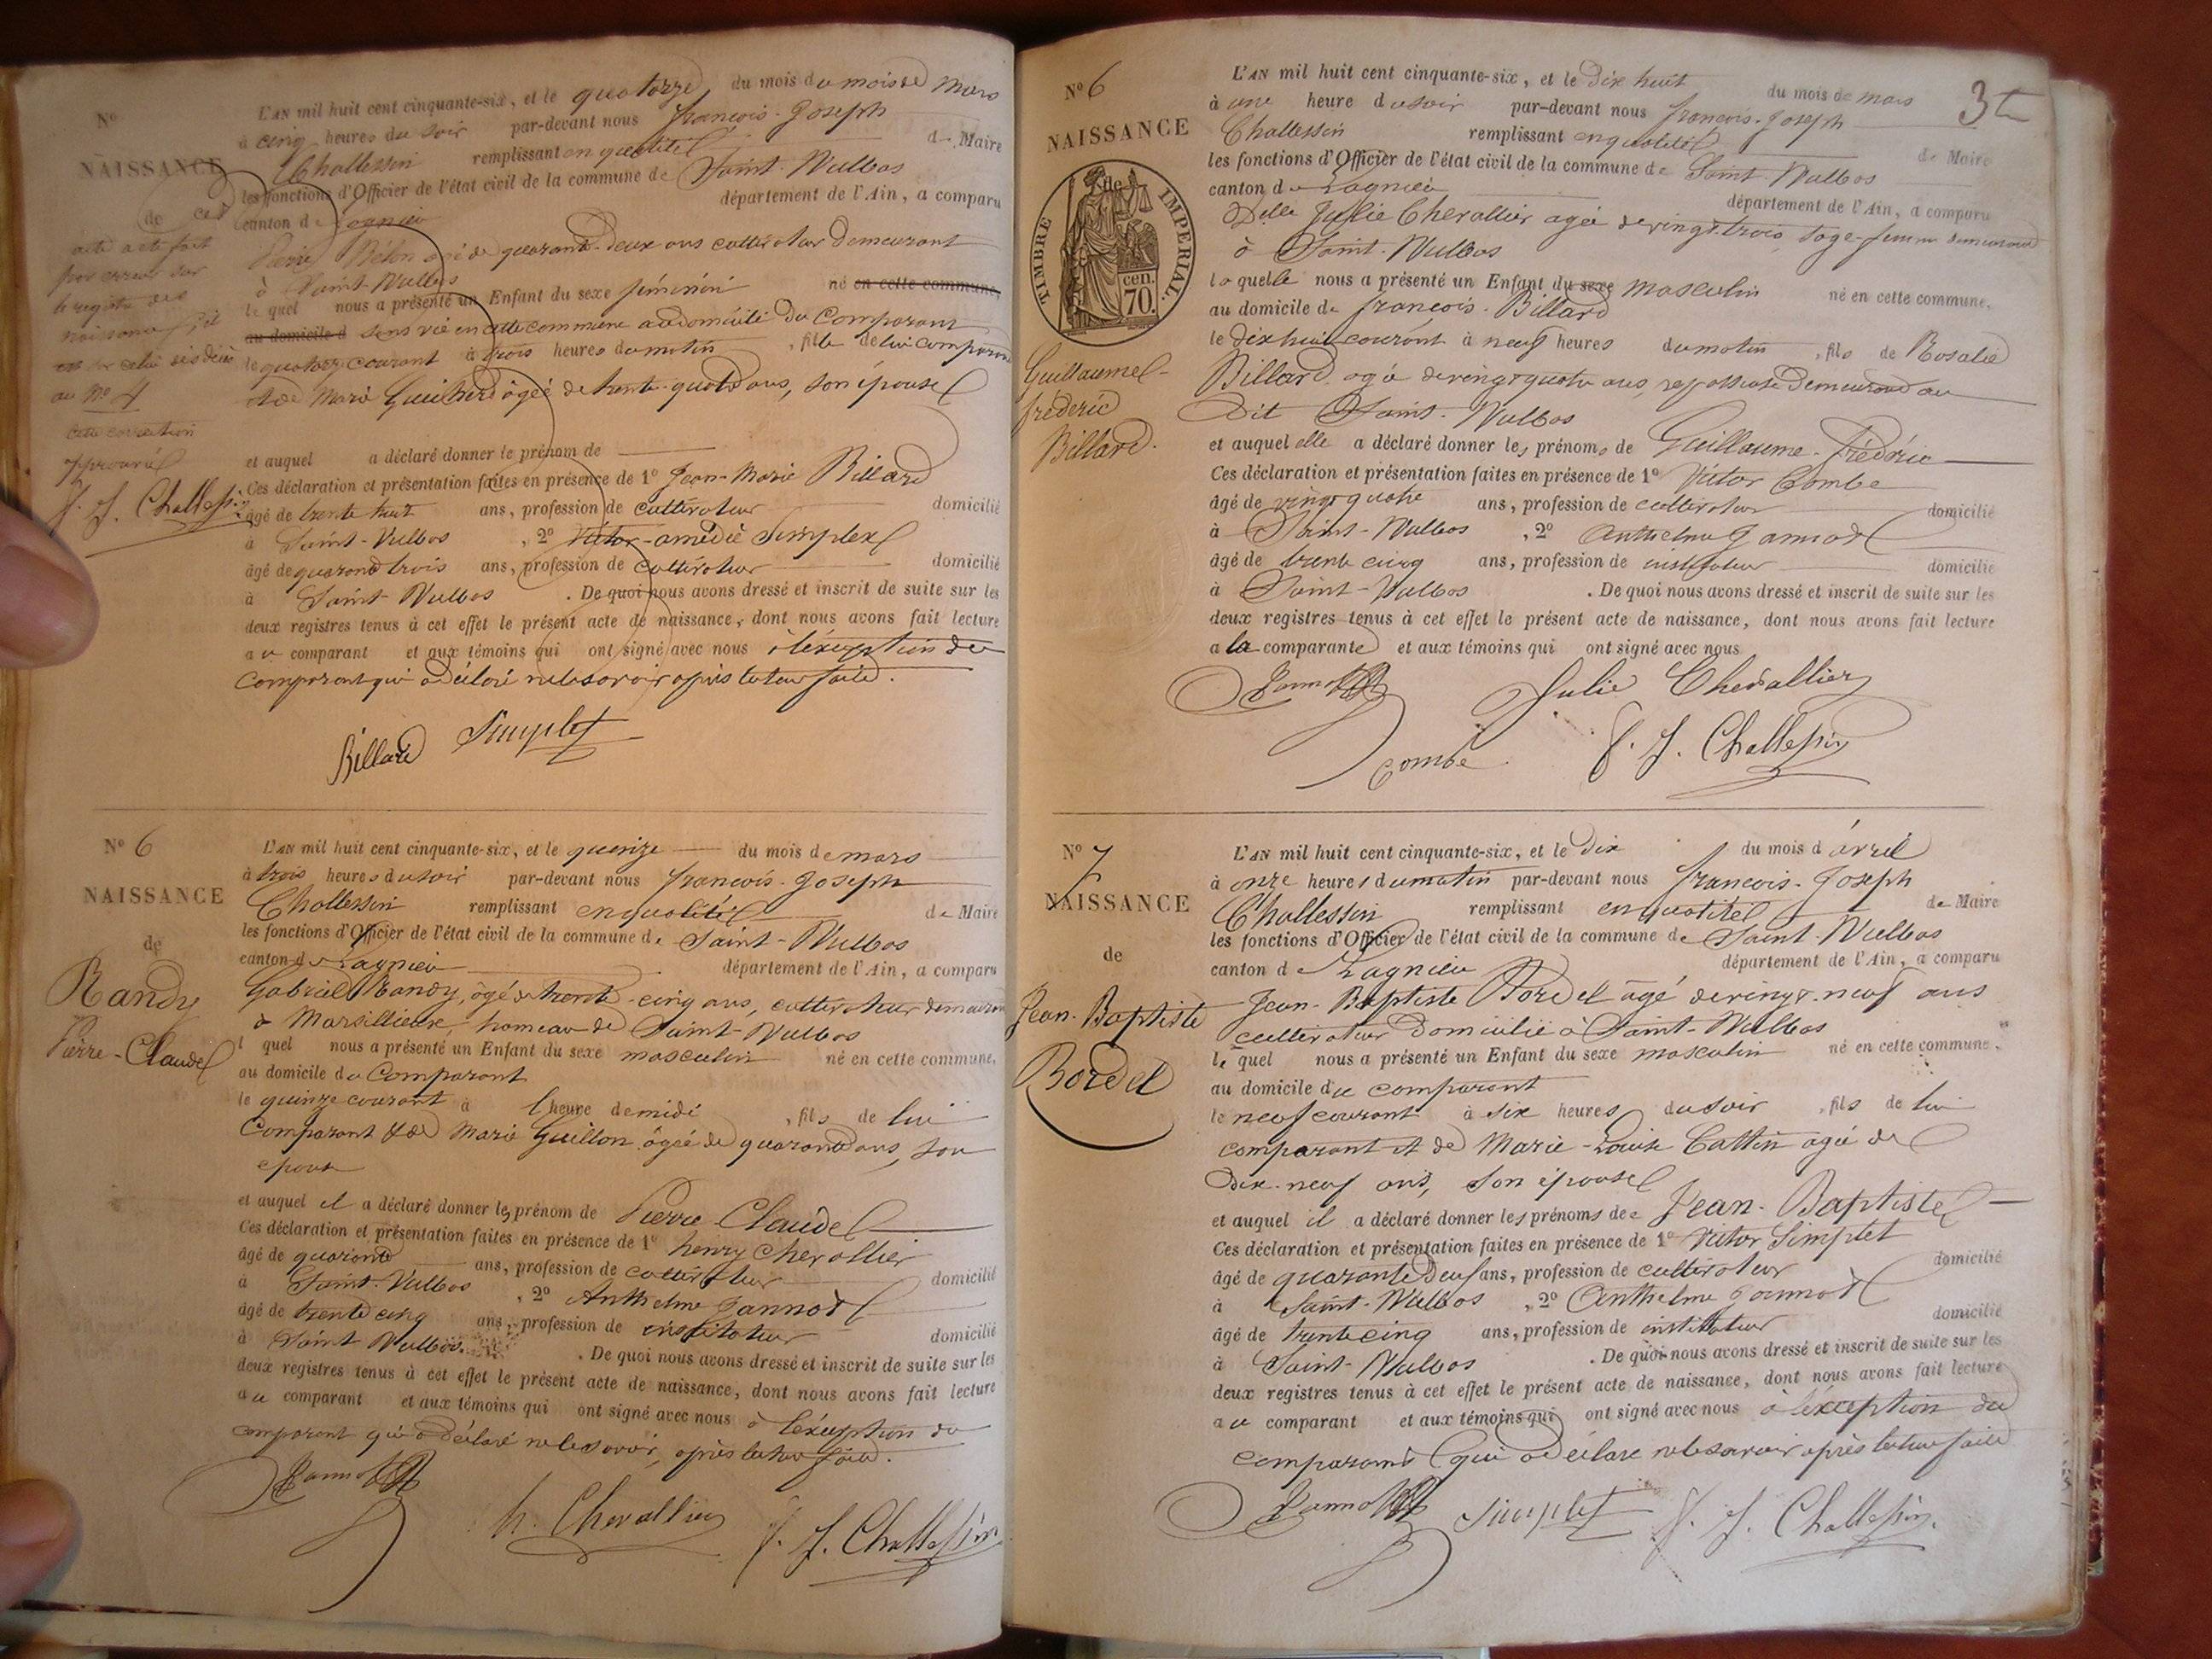 N°
NAISSANCE
de ces
acte acte fait
par erreur sur
le registre des
naissances, il
est sur celui des décès
au N° 4
cette correction
approuvée
f. J. Challessin
L'AN mil huit cent cinquante-six, et le quatorze du mois du mois de mars
à cinq heures du soir par-devant nous françois-Joseph
Challessin remplissant en qualité de Maire
les fonctions d'Officier de l'état civil de la commune de Saint-Vulbas
canton de Lagnieu département de l'Ain, a comparu
Pierre Bélon agé de quarante-deux ans cultivateur demeurant
à Saint-Vulbas
le quel nous a présenté un Enfant du sexe féminin né en cette commune,
au domicile d sans vie en cette commune au domicile du Comparant
le quatorze courant à trois heures du matin, fille de lui comparant
et de Marie âgée de trente-quatre ans, son épouse
et auquel a déclaré donner le prénom de
Ces déclaration et présentation faites en présence de 1° Jean-Marie Billard
âgé de trente huit ans, profession de cultivateur domicilié
à Saint-Vulbas, 2° Victor-amédée Simplex
âgé de quarante trois ans, profession de cultivateur domicilié
à Saint-Vulbas. De quoi nous avons dressé et inscrit de suite sur les
deux registres tenus à cet effet le présent acte de naissance, dont nous avons fait lecture
au comparant et aux témoins qui ont signé avec nous à l'éxception du
comparant qui a déclaré ne le savoir après lecture faite.
Billard Simplet
N° 6
NAISSANCE
de
Randy
Pierre-Claude
L'AN mil huit cent cinquante-six, et le quinze du mois de mars
à trois heures du soir par-devant nous françois-Joseph
Challessin remplissant en qualité de Maire
les fonctions d'Officier de l'état civil de la commune de Saint-Vulbas
canton de Lagnieu département de l'Ain, a comparu
Gabriel Randy, âgé de trente-cinq ans, cultivateur demeurant
à Marsillieux, hameau de Saint-Vulbas
l quel nous a présenté un Enfant du sexe masculin né en cette commune,
au domicile du Comparant
le quinze courant à l'heure de midi, fils de lui
Comparant & de Marie Guillon âgée de quarante ans, son
epouse
et auquel il a déclaré donner les prénom de Pierre Claude
Ces déclaration et présentation faites en présence de 1° henry Chevallier
âgé de quarante ans, profession de cultivateur domicilié
à Saint-Vulbas, 2° Anthelme Jannot
âgé de trente cinq ans, profession de instituteur domicilié
à Saint Vulbas. De quoi nous avons dressé et inscrit de suite sur les
deux registres tenus à cet effet le présent acte de naissance, dont nous avons fait lecture
au comparant et aux témoins qui ont signé avec nous à l'éxception du
comparant qui a déclaré ne le savoir, après lecture faite.
Jannot
h. Chevallier f. J. Challessin
3
N° 6
NAISSANCE
de
TIMBRE IMPERIAL.
70. cen.
Guillaume-
fréderic
Billard.
L'AN mil huit cent cinquante-six, et le dix huit du mois de mars
à une heure du soir par-devant nous françois-Joseph
Challessin remplissant en qualité de Maire
les fonctions d'Officier de l'état civil de la commune de Saint-Vulbas
canton de Lagnieu département de l'Ain, a comparu
Delle Julie Chevallier agée de vingt-trois sage-femme demeurant
à Saint-Vulbas
laquelle nous a présenté un Enfant du sexe masculin né en cette commune.
au domicile de françois-Billard
le dix huit courant à neuf heures du matin, fils de Rosalie
Billard agée de vingt quatre ans, repasseuse demeurant au
Dit Saint-Vulbas
et auquel elle a déclaré donner les prénoms de Guillaume-Frédéric
Ces déclaration et présentation faites en présence de 1° Victor Combe
âgé de vingt quatre ans, profession de cultivateur domicilié
à Saint-Vulbas, 2° Anthelme Jannot
âgé de trente cinq ans, profession de instituteur domicilié
à Saint-Vulbas. De quoi nous avons dressé et inscrit de suite sur les
deux registres tenus à cet effet le présent acte de naissance, dont nous avons fait lecture
a la comparante et aux témoins qui ont signé avec nous
Jannot Julie Chevallier
Combe f. J. Challessin
N° 7
NAISSANCE
de
Jean-Baptiste
Bordel
L'AN mil huit cent cinquante-six, et le dix du mois d'avril
à onze heures du matin par-devant nous françois-Joseph
Challessin remplissant en qualité de Maire
les fonctions d'Officier de l'état civil de la commune de Saint-Vulbas
canton de Lagnieu département de l'Ain, a comparu
Jean-Baptiste Bordel âgé de vingt-neuf ans
cultivateur domicilié à Saint-Vulbas
le quel nous a présenté un Enfant du sexe masculin né en cette commune.
au domicile du comparant
le neuf courant à six heures du soir, fils de lui
comparant et de Marie-Louise Cattin agée de
Dix-neuf ans, son épouse
et auquel il a déclaré donner les prénoms de Jean-Baptiste
Ces déclaration et présentation faites en présence de 1° Victor Simplet
âgé de quarante deux ans, profession de cultivateur domicilié
à Saint-Vulbas, 2° Anthelme Jannot
âgé de trente cinq ans, profession de instituteur domicilié
à Saint-Vulbas. De quoi nous avons dressé et inscrit de suite sur les
deux registres tenus à cet effet le présent acte de naissance, dont nous avons fait lecture
au comparant et aux témoins qui ont signé avec nous à l'éxception du
comparant qui a déclare ne le savoir après lecture faite
Jannot Simplet f. J. Challessin.